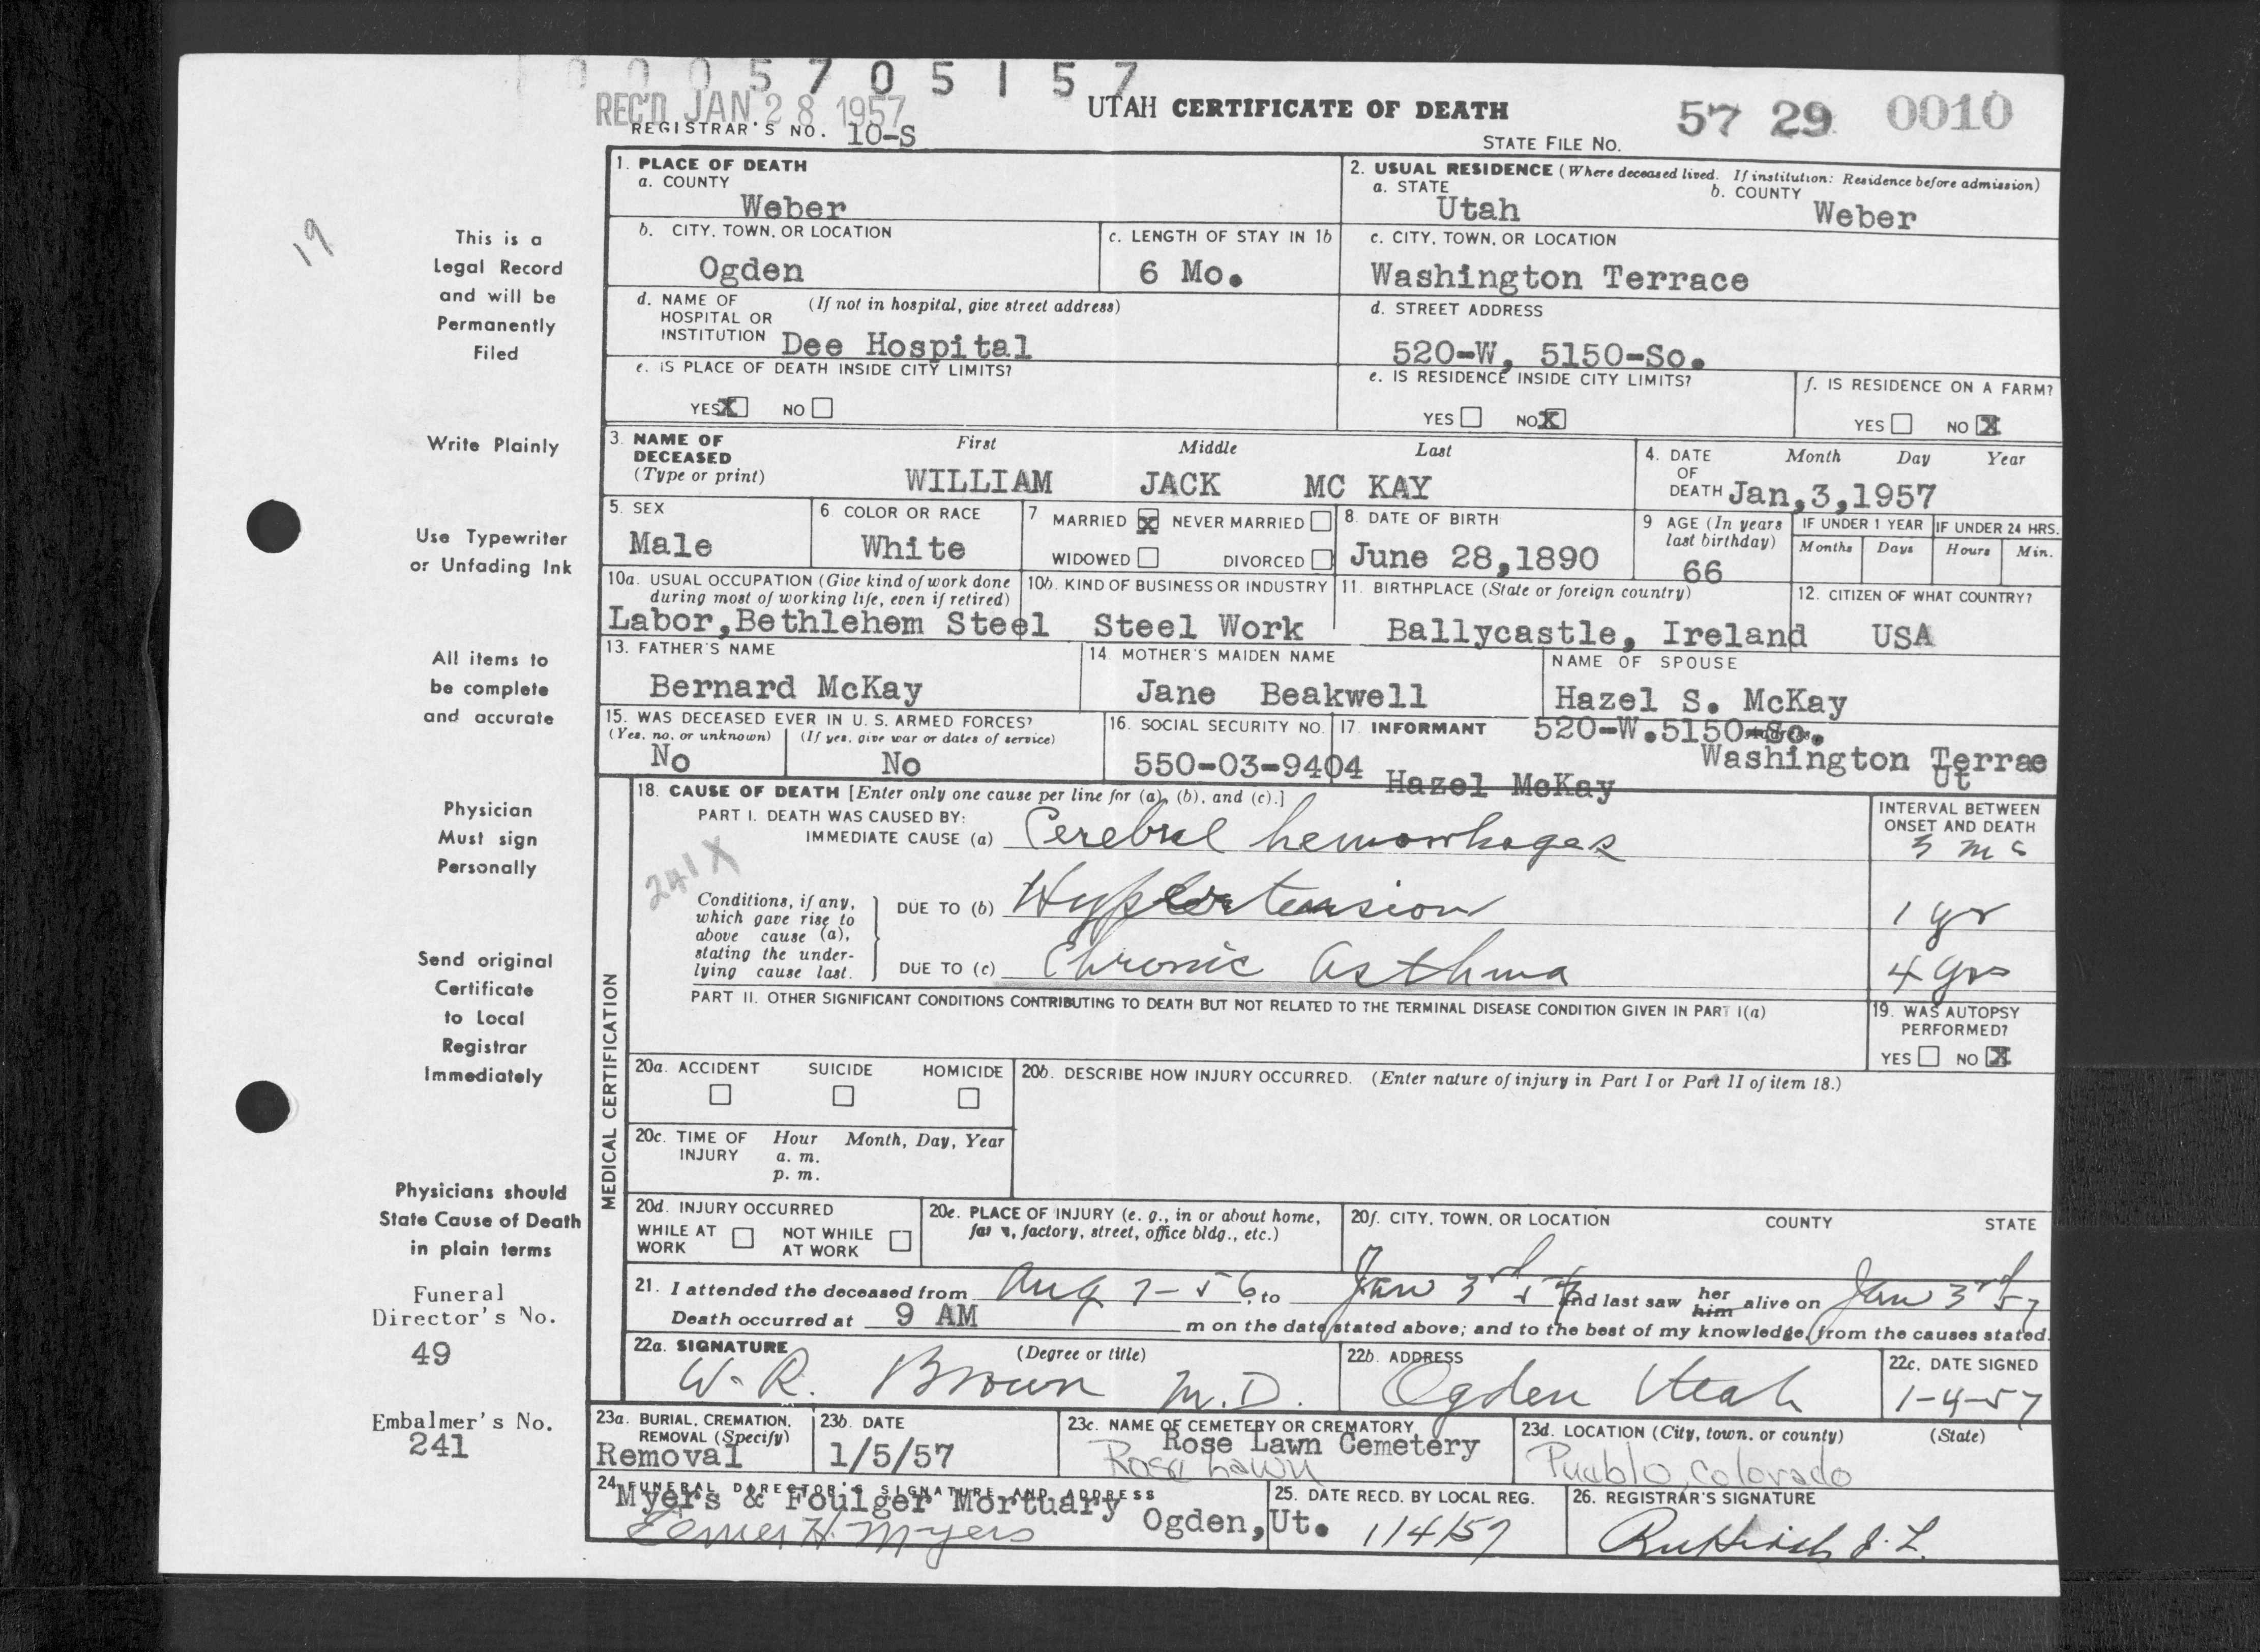 0 0 0 5 7 0 5 1 5 7
REC'D JAN 28 1957
UTAH CERTIFICATE OF DEATH
57 29 0010
REGISTRAR'S NO. 10-S
STATE FILE NO.
19
This is a
Legal Record
and will be
Permanently
Filed
Write Plainly
Use Typewriter
or Unfading Ink
All items to
be complete
and accurate
Physician
Must sign
Personally
Send original
Certificate
to Local
Registrar
Immediately
Physicians should
State Cause of Death
in plain terms
Funeral
Director's No.
49
Embalmer's No.
241
1. PLACE OF DEATH
a. COUNTY
Weber
2. USUAL RESIDENCE (Where deceased lived. If institution: Residence before admission)
a. STATE b. COUNTY
Utah Weber
b. CITY, TOWN, OR LOCATION
Ogden
c. LENGTH OF STAY IN 1b
6 Mo.
c. CITY, TOWN, OR LOCATION
Washington Terrace
d. NAME OF (If not in hospital, give street address)
HOSPITAL OR
INSTITUTION Dee Hospital
d. STREET ADDRESS
520-W, 5150-So.
e. IS PLACE OF DEATH INSIDE CITY LIMITS?
YES X NO
e. IS RESIDENCE INSIDE CITY LIMITS?
YES NO X
f. IS RESIDENCE ON A FARM?
YES NO X
3. NAME OF DECEASED (Type or print)
First Middle Last
WILLIAM JACK MC KAY
4. DATE OF DEATH
Month Day Year
Jan,3,1957
5. SEX
Male
6. COLOR OR RACE
White
7 MARRIED X NEVER MARRIED
WIDOWED DIVORCED
8. DATE OF BIRTH
June 28,1890
9 AGE (In years last birthday)
66
IF UNDER 1 YEAR IF UNDER 24 HRS.
Months Days Hours Min.
10a. USUAL OCCUPATION (Give kind of work done
during most of working life, even if retired)
Labor,Bethlehem Steel
10b. KIND OF BUSINESS OR INDUSTRY
Steel Work
11. BIRTHPLACE (State or foreign country)
Ballycastle, Ireland
12. CITIZEN OF WHAT COUNTRY?
USA
13. FATHER'S NAME
Bernard McKay
14. MOTHER'S MAIDEN NAME
Jane Beakwell
NAME OF SPOUSE
Hazel S. McKay
15. WAS DECEASED EVER IN U. S. ARMED FORCES?
(Yes, no, or unknown) (If yes, give war or dates of service)
No No
16. SOCIAL SECURITY NO.
550-03-9404
17. INFORMANT 520-W.5150-So.
Washington Terrae
Ut
Hazel McKay
MEDICAL CERTIFICATION
18. CAUSE OF DEATH [Enter only one cause per line for (a), (b), and (c).]
PART I. DEATH WAS CAUSED BY:
IMMEDIATE CAUSE (a) Cerebral hemorrhages
INTERVAL BETWEEN
ONSET AND DEATH
241X
Conditions, if any,
which gave rise to
above cause (a),
stating the under-
lying cause last.
DUE TO (b) Hypertension
1 yr
DUE TO (c) Chronic Asthma
4 yrs
PART II. OTHER SIGNIFICANT CONDITIONS CONTRIBUTING TO DEATH BUT NOT RELATED TO THE TERMINAL DISEASE CONDITION GIVEN IN PART I(a)
19. WAS AUTOPSY
PERFORMED?
YES NO X
20a. ACCIDENT SUICIDE HOMICIDE
20b. DESCRIBE HOW INJURY OCCURRED. (Enter nature of injury in Part I or Part II of item 18.)
20c. TIME OF INJURY
Hour Month, Day, Year
a. m.
p. m.
20d. INJURY OCCURRED
WHILE AT WORK NOT WHILE AT WORK
20e. PLACE OF INJURY (e. g., in or about home,
farm, factory, street, office bldg., etc.)
20f. CITY, TOWN, OR LOCATION COUNTY STATE
21. I attended the deceased from Aug 7-56, to Jan 3rd and last saw her him alive on Jan 3rd 57
Death occurred at 9 AM m on the date stated above; and to the best of my knowledge, from the causes stated.
22a. SIGNATURE (Degree or title)
W. R. Brown M.D.
22b. ADDRESS
Ogden Utah
22c. DATE SIGNED
1-4-57
23a. BURIAL, CREMATION,
REMOVAL (Specify)
Removal
23b. DATE
1/5/57
23c. NAME OF CEMETERY OR CREMATORY
Rose Lawn Cemetery
Rose Lawn
23d. LOCATION (City, town, or county) (State)
Pueblo, Colorado
24 FUNERAL DIRECTOR'S SIGNATURE AND ADDRESS
Myers & Foulger Mortuary
Ogden, Ut.
Elmer H. Myers
25. DATE RECD. BY LOCAL REG.
1/4/57
26. REGISTRAR'S SIGNATURE